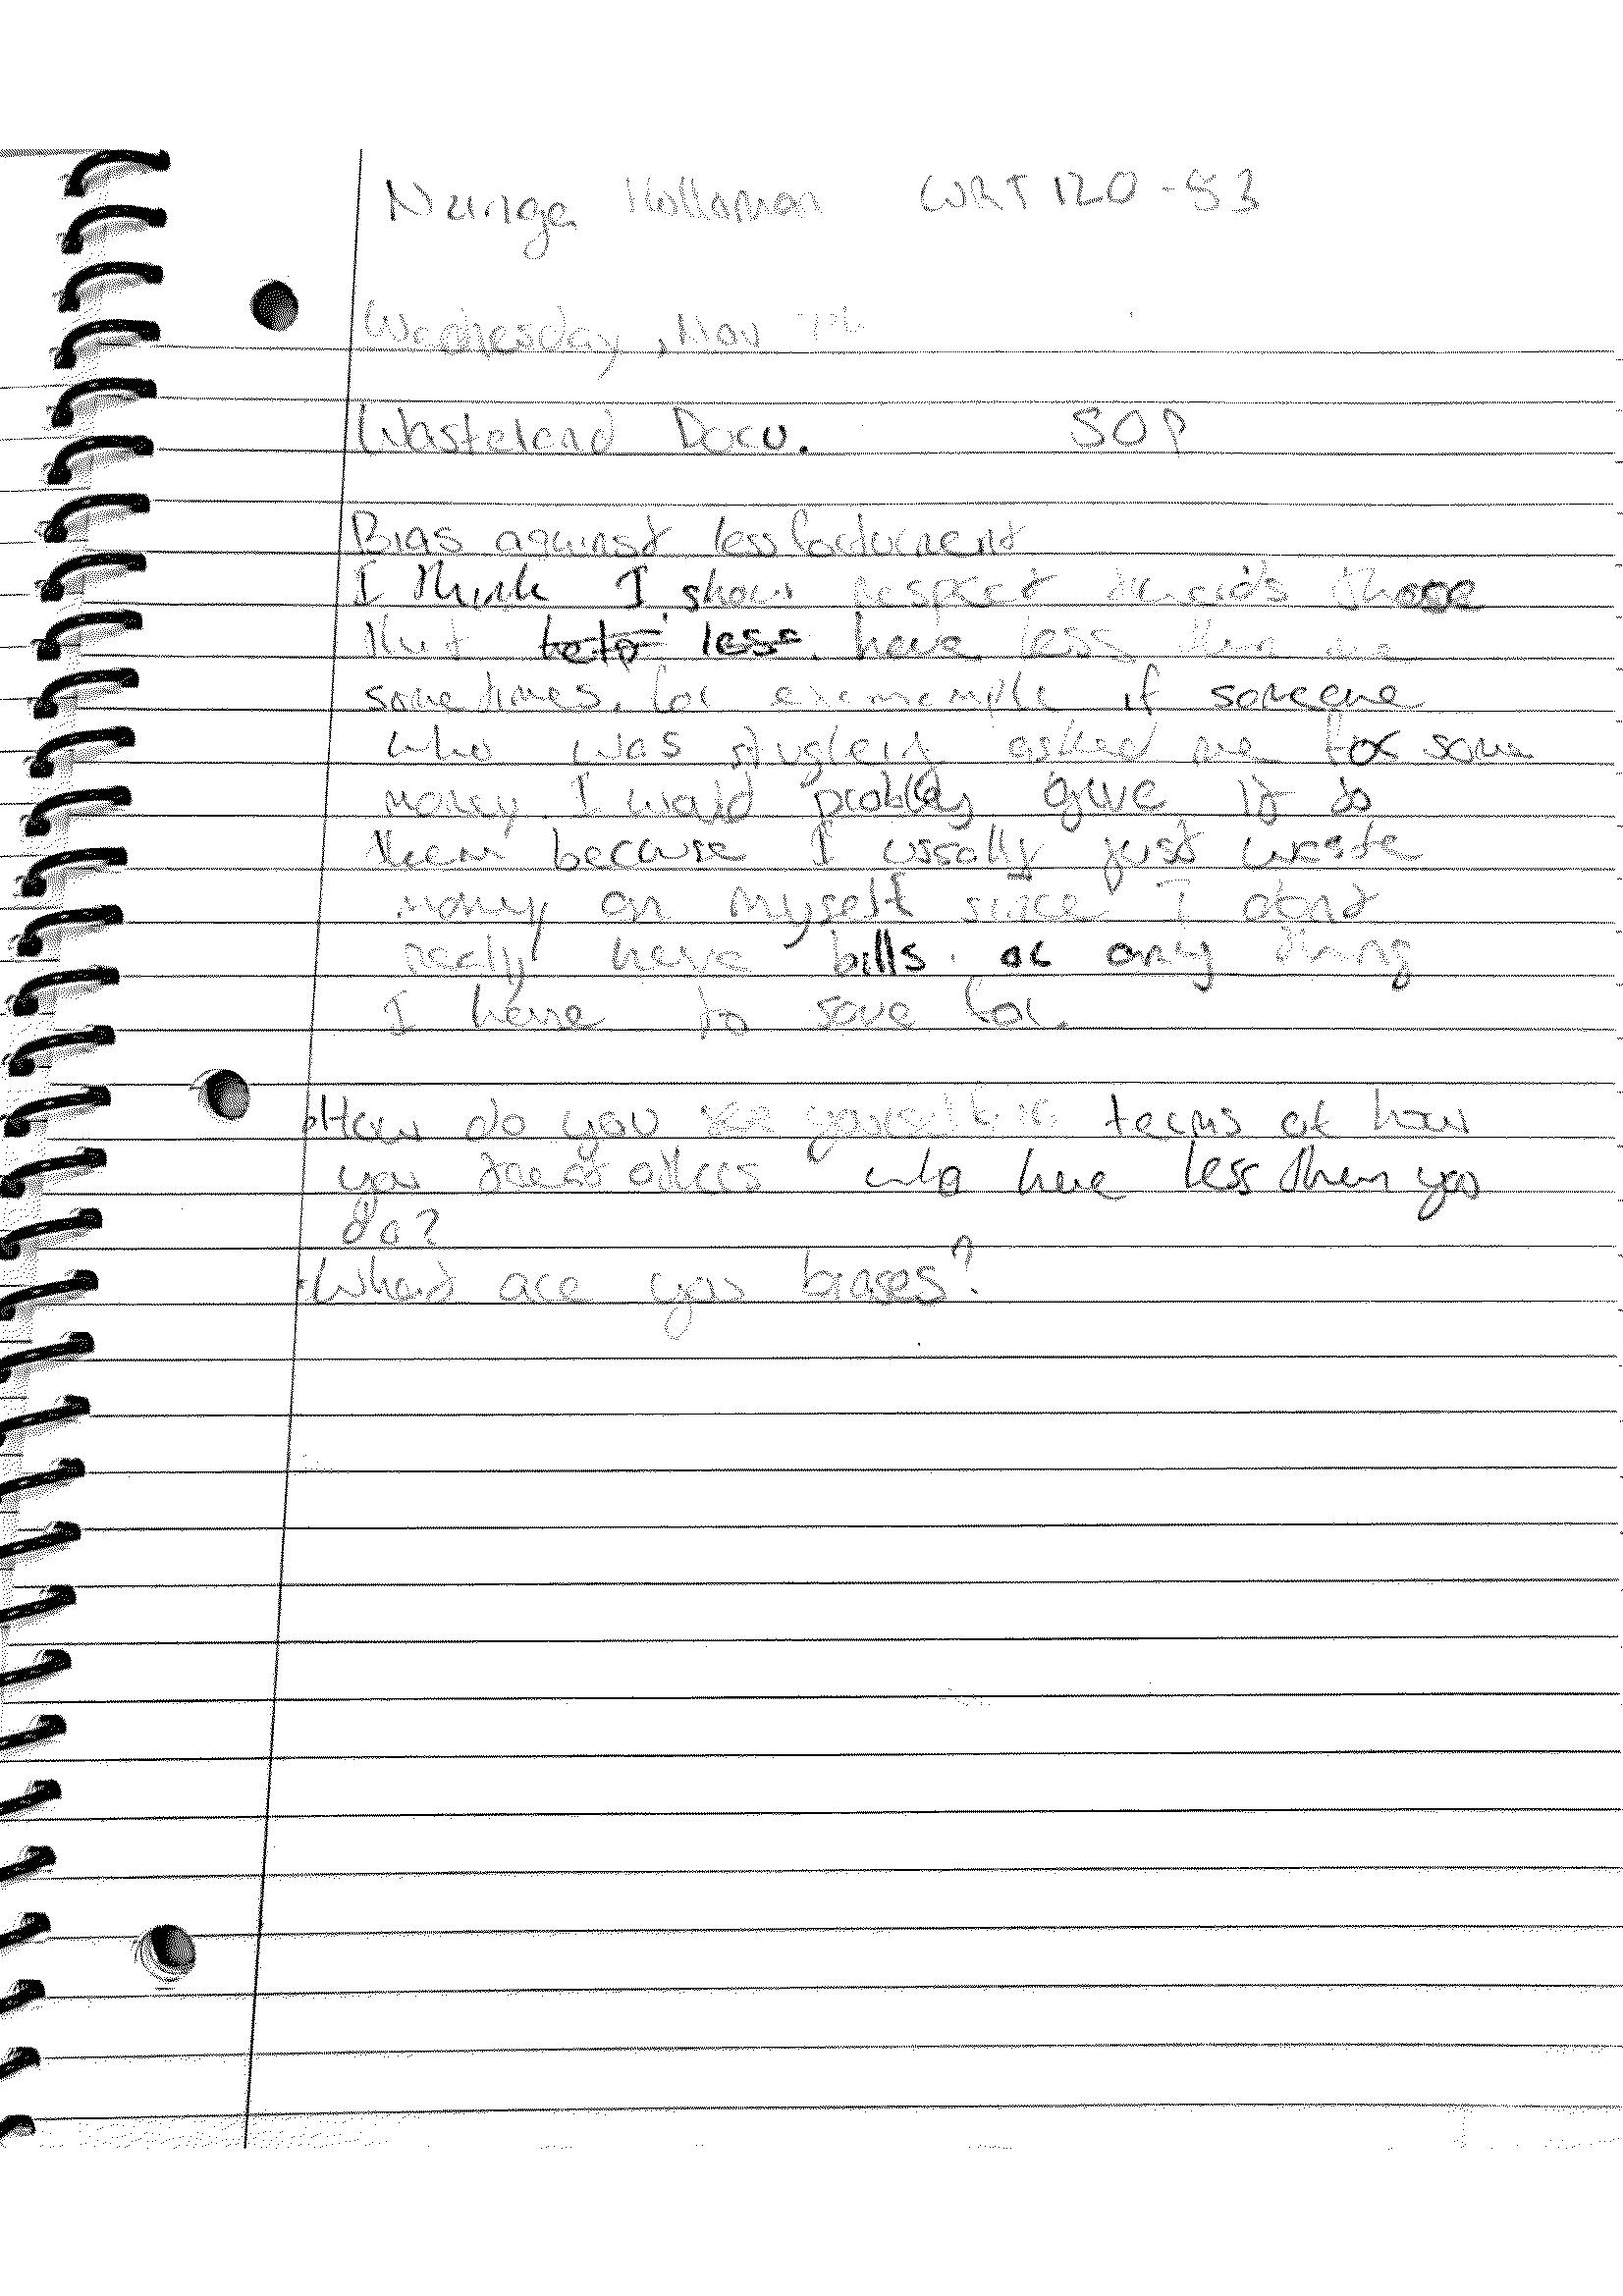 Nuriga Holloman WRT 120 - 53
Wednesday, Nov 7th
Wasteland Docu. SOP
Bias against less fordurnent
I think I show respect towards those
that help less have less then me
sometimes. for exememple if someone
who was stuglein asked me for some
money I would probbly give it to
them because I ussally just waste
money on myself since I dont
really have bills. or any thing
I have to save for.
How do you see yourself in terms of how
you treat others who have less then you
do?
What are you biases?